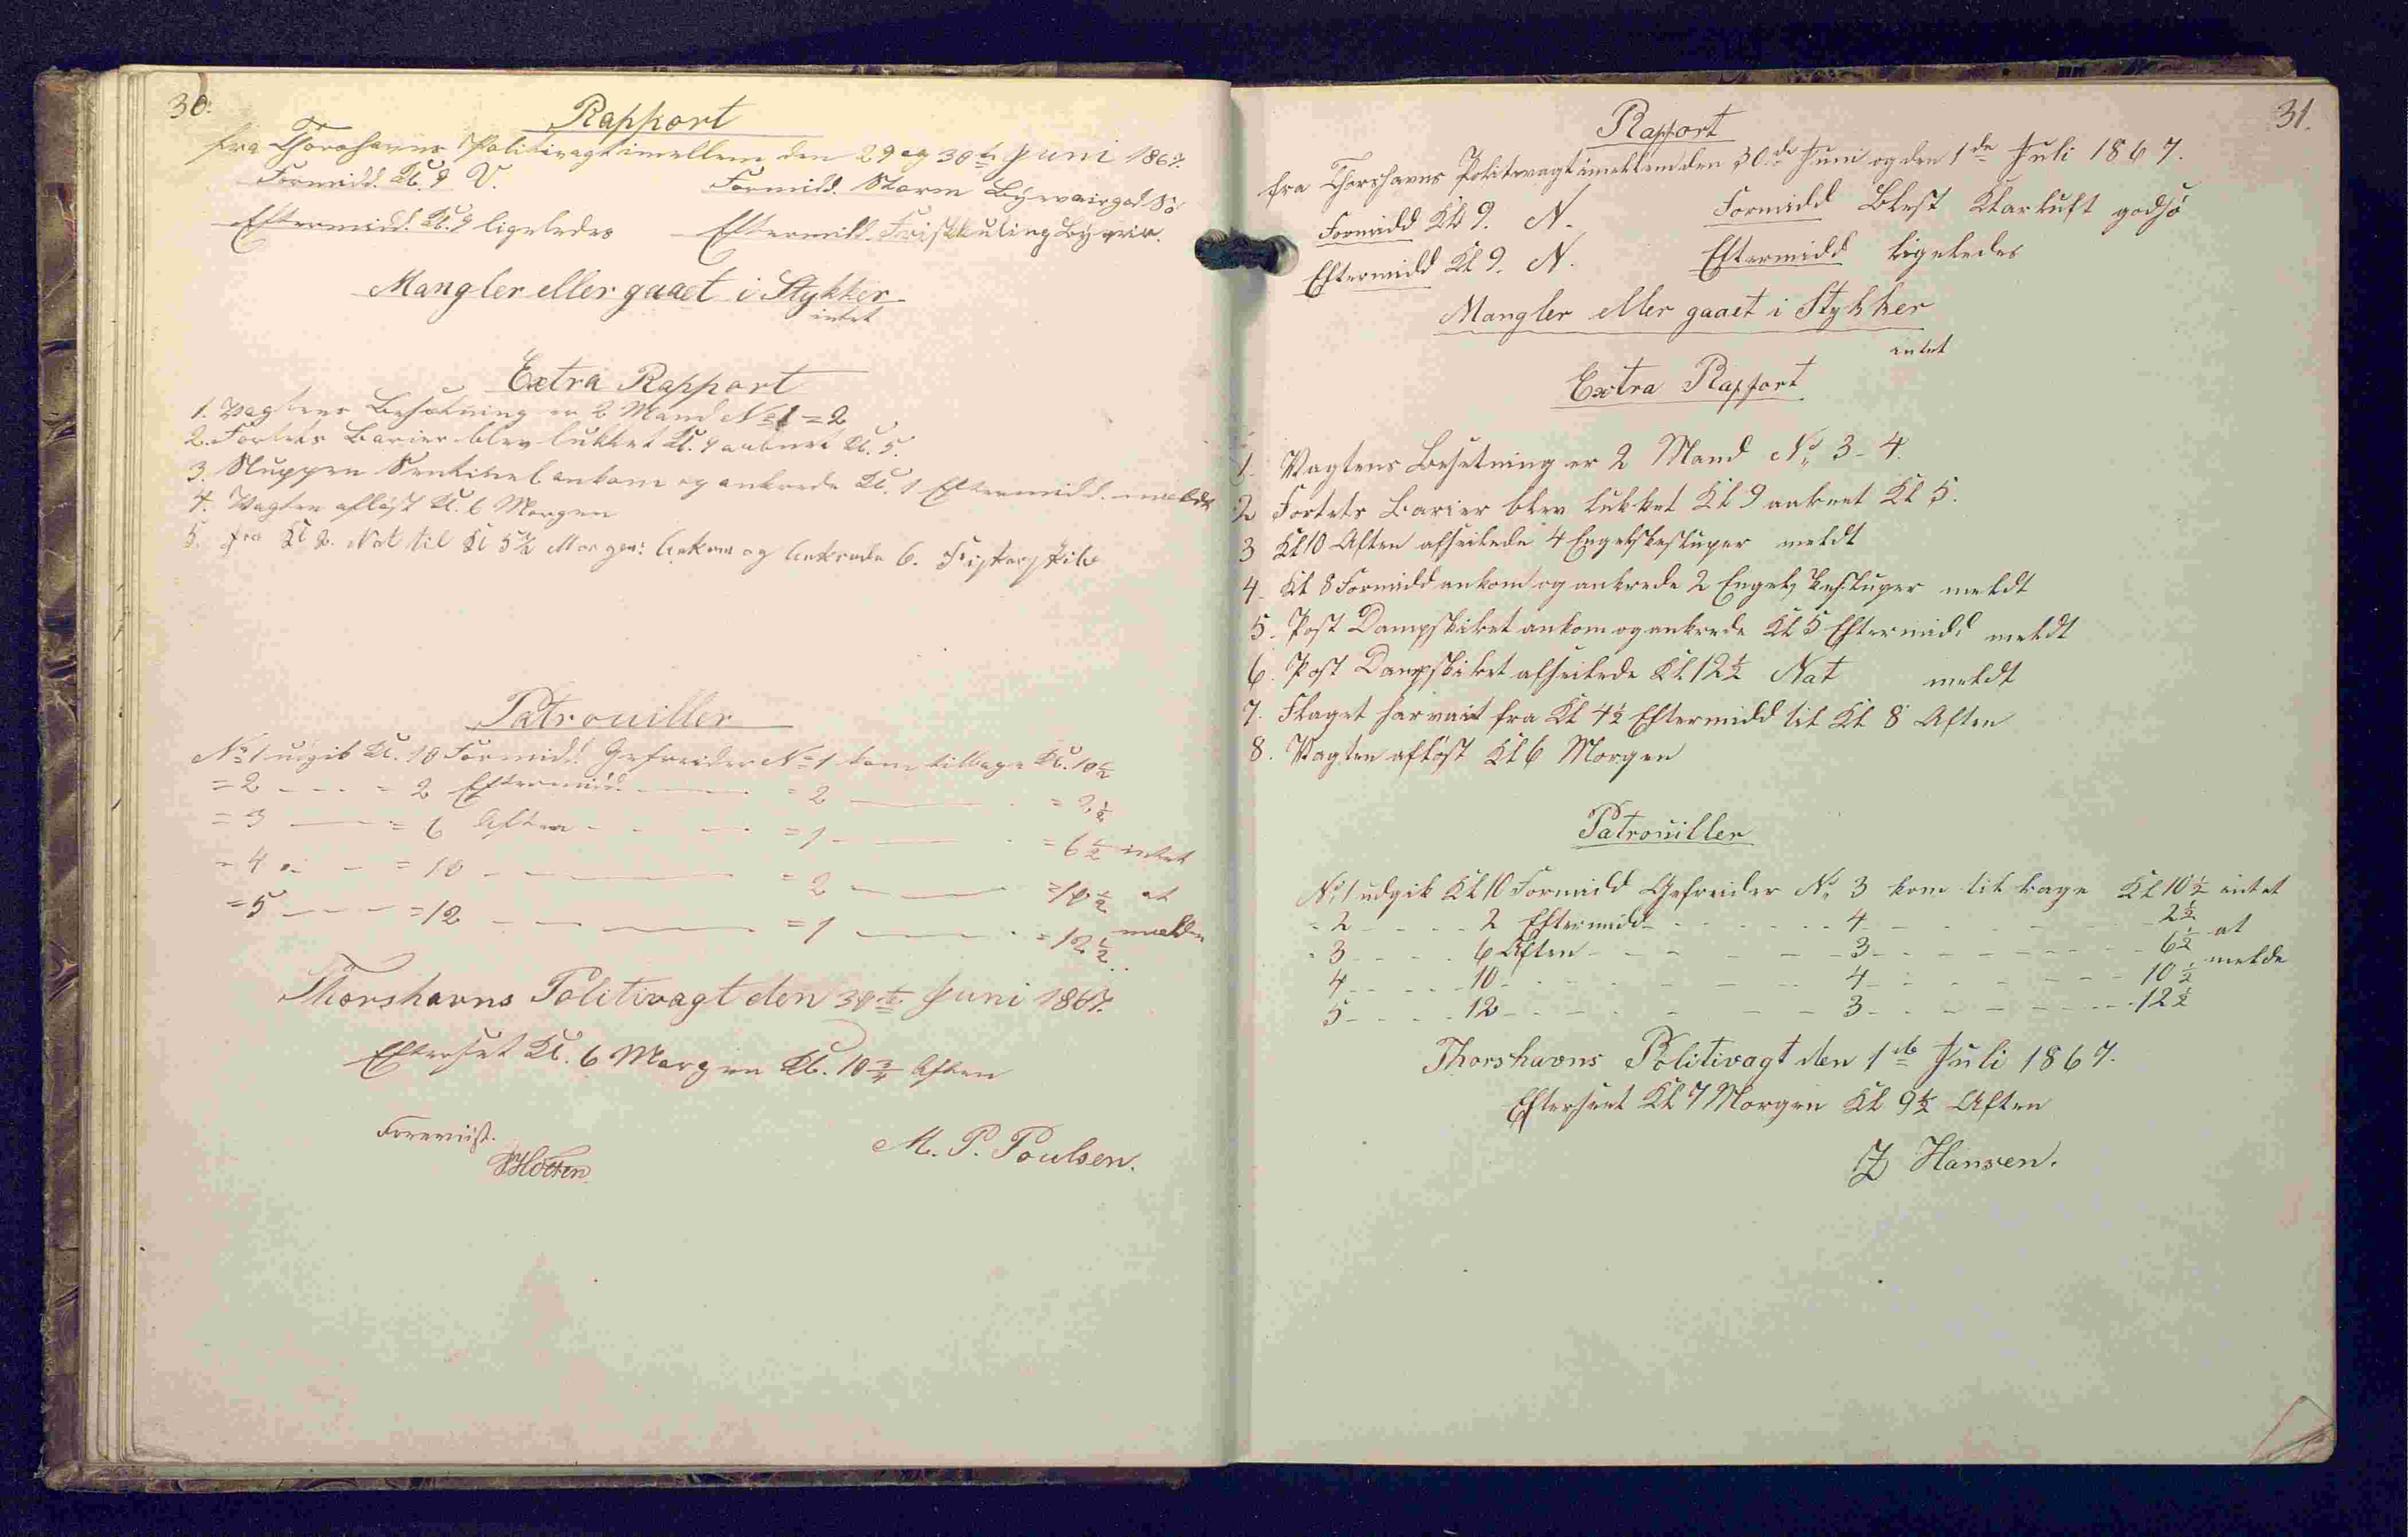 30.
Rapport
fra Thorshavns Politivagt imellem den 29 og 30te Juni 1867.
Formidd. Kl. 9 V. Formidd. Storm Byvair god Sö
Eftermidd. Kl. 9 ligeledes Eftermidd. Friskkuling Byvair.
Mangler eller gaaet i Stykker
intet
Extra Rapport
1. Vagtens Besætning er 2 Mand No 1 = 2
2. Fortets Barier blev lukket Kl. 9 aabnet Kl. 5.
3. Sluppen Sentinel ankom og ankrede Kl. 1 Eftermidd. meldt
4. Vagten afløst Kl. 6 Morgen
5. fra Kl 2. Nat til Kl 5½ Morgen: ankom og ankrede 6. Fiskerskibe
Patrouiller
No 1 udgik Kl. 10 Formidd. Gefreider No 1 kom tilbage Kl. 10½
= 2 - - - = 2 Eftermidd. - - = 2 - - = 2½
= 3 - - = 6 Aften - - - = 1 - - - = 6½ intet
= 4 - - = 10 - - - = 2 - - = 10½ at
= 5 - - - = 12 - - - = 1 - - = 12½ melde
Thorshavns Politivagt den 30te Juni 1867.
Efterset Kl. 6 Morgen Kl. 10¾ Aften
Foreviist.
M. P. Poulsen.
31.
Rapport
fra Thorshavns Politivagt imellem den 30.de Juni og den 1de Juli 1867.
Formidd Kl 9. N. Formidd Blest Klarluft godsö
Eftermidd Kl 9. N. Eftermidd ligeledes
Mangler eller gaaet i Stykker
intet
Extra Rapport
1. Vagtens Besetning er 2 Mand No 3 - 4.
2 Fortets Barier blev lukket Kl 9 aabnet Kl 5.
3 Kl 10 Aften afseilede 4 Engelskesluper meldt
4. Kl 8 Formidd ankom og ankrede 2 Engelskesluper meldt
5. Post Dampskibet ankom og ankrede Kl 5 Eftermidd meldt
6. Post Dampskibet afseilede Kl 12½ Nat meldt
7. Flaget har vait fra Kl 4½ Eftermidd til Kl 8 Aften
8. Vagten afløst Kl 6 Morgen
Patrouiller
No 1 udgik Kl 10 Formidd Gefreider No 3 kom til bage Kl 10½ intet
- 2 - - - - 2 Eftermidd - - - - 4 - - - - 2½ at
- 3 - - - - 6 Aften - - - - 3 - - - - 6½ melde
4 - - - - 10 - - - - 4 - - - - 10½
5 - - - - 12 - - - - 3 - - - - 12½
Thorshavns Politivagt den 1de Juli 1867.
Efterseet Kl 7 Morgen Kl 9½ Aften
Z Hansen.